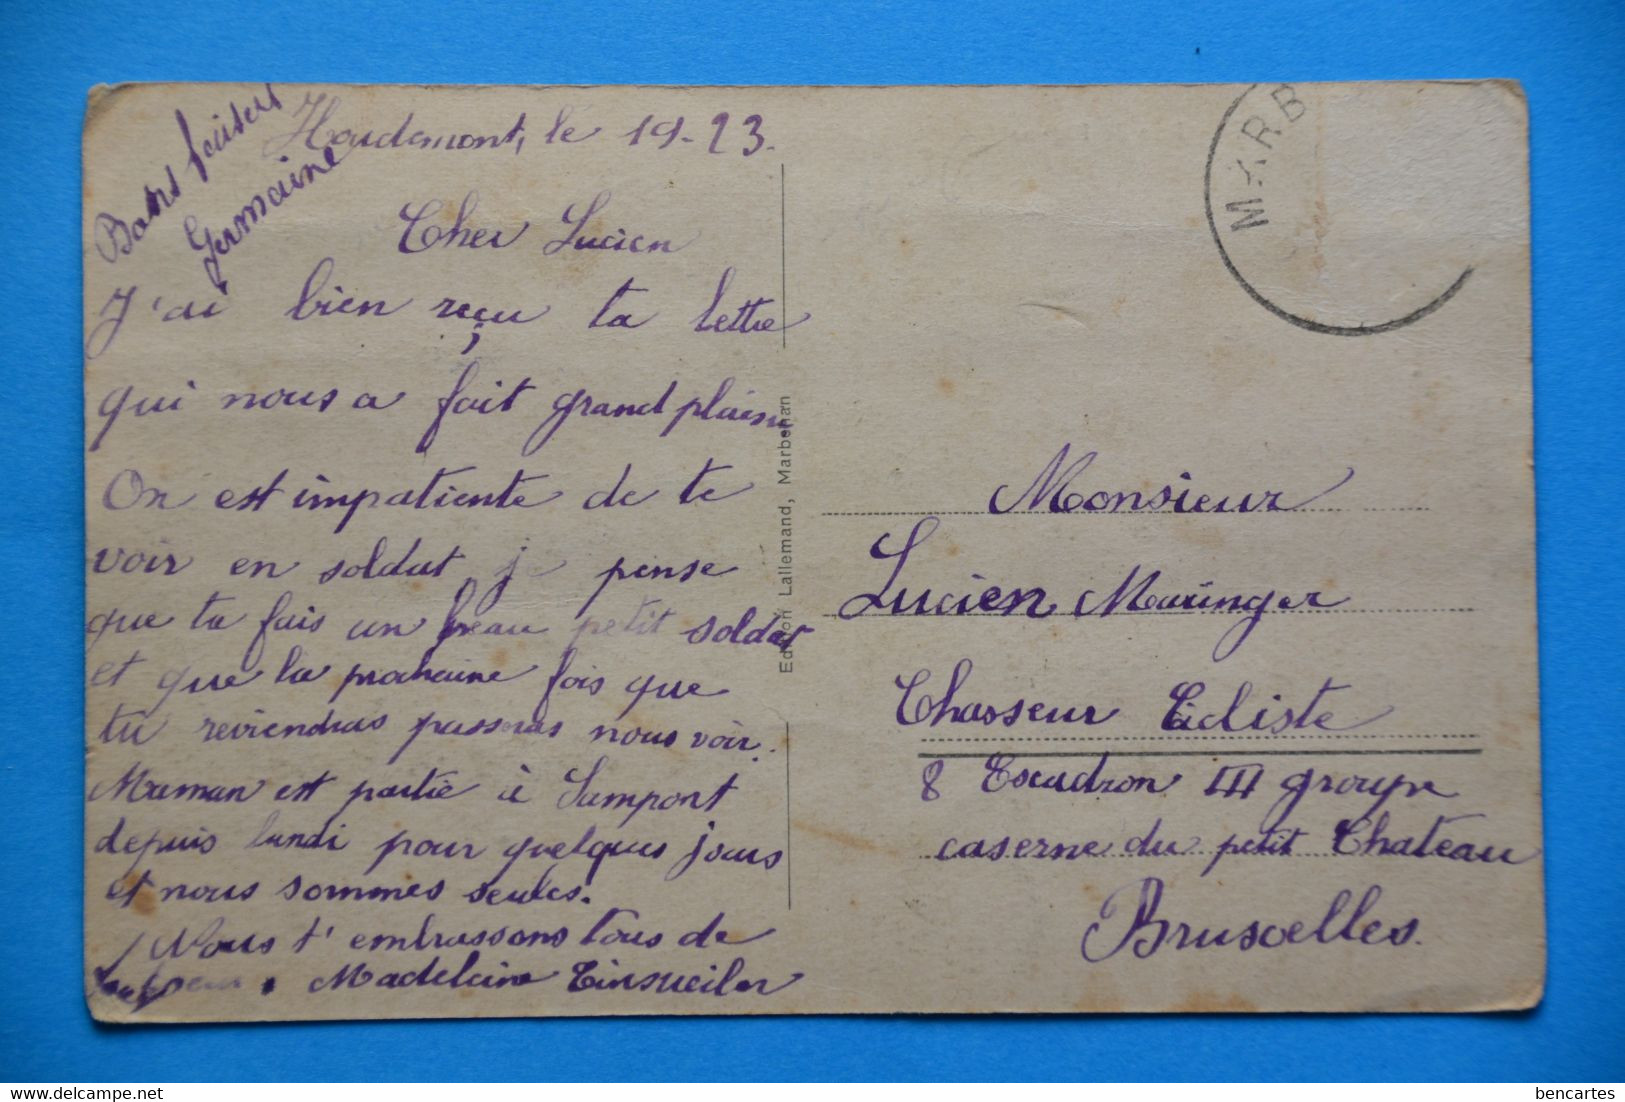 Bons baisers
Germaine
Houdemont, le 19-23.
Cher Lucien
J'ai bien reçu ta lettre
qui nous a fait grand plaisir
On est impatiente de te
voir en soldat je pense
que tu fais un beau petit soldat
et que la prochaine fois que
tu reviendras passeras nous voir.
Maman est partie à Sampont
depuis lundi pour quelques jours
et nous sommes seules.
Nous t'embrassons tous de
Madeleine
Edition Lallemand, Marbehan
MARB
Monsieur
Lucien Mauringer
Chasseur Cicliste
8 Escadron III groupe
caserne du petit Chateau
Bruxelles.
bencartes